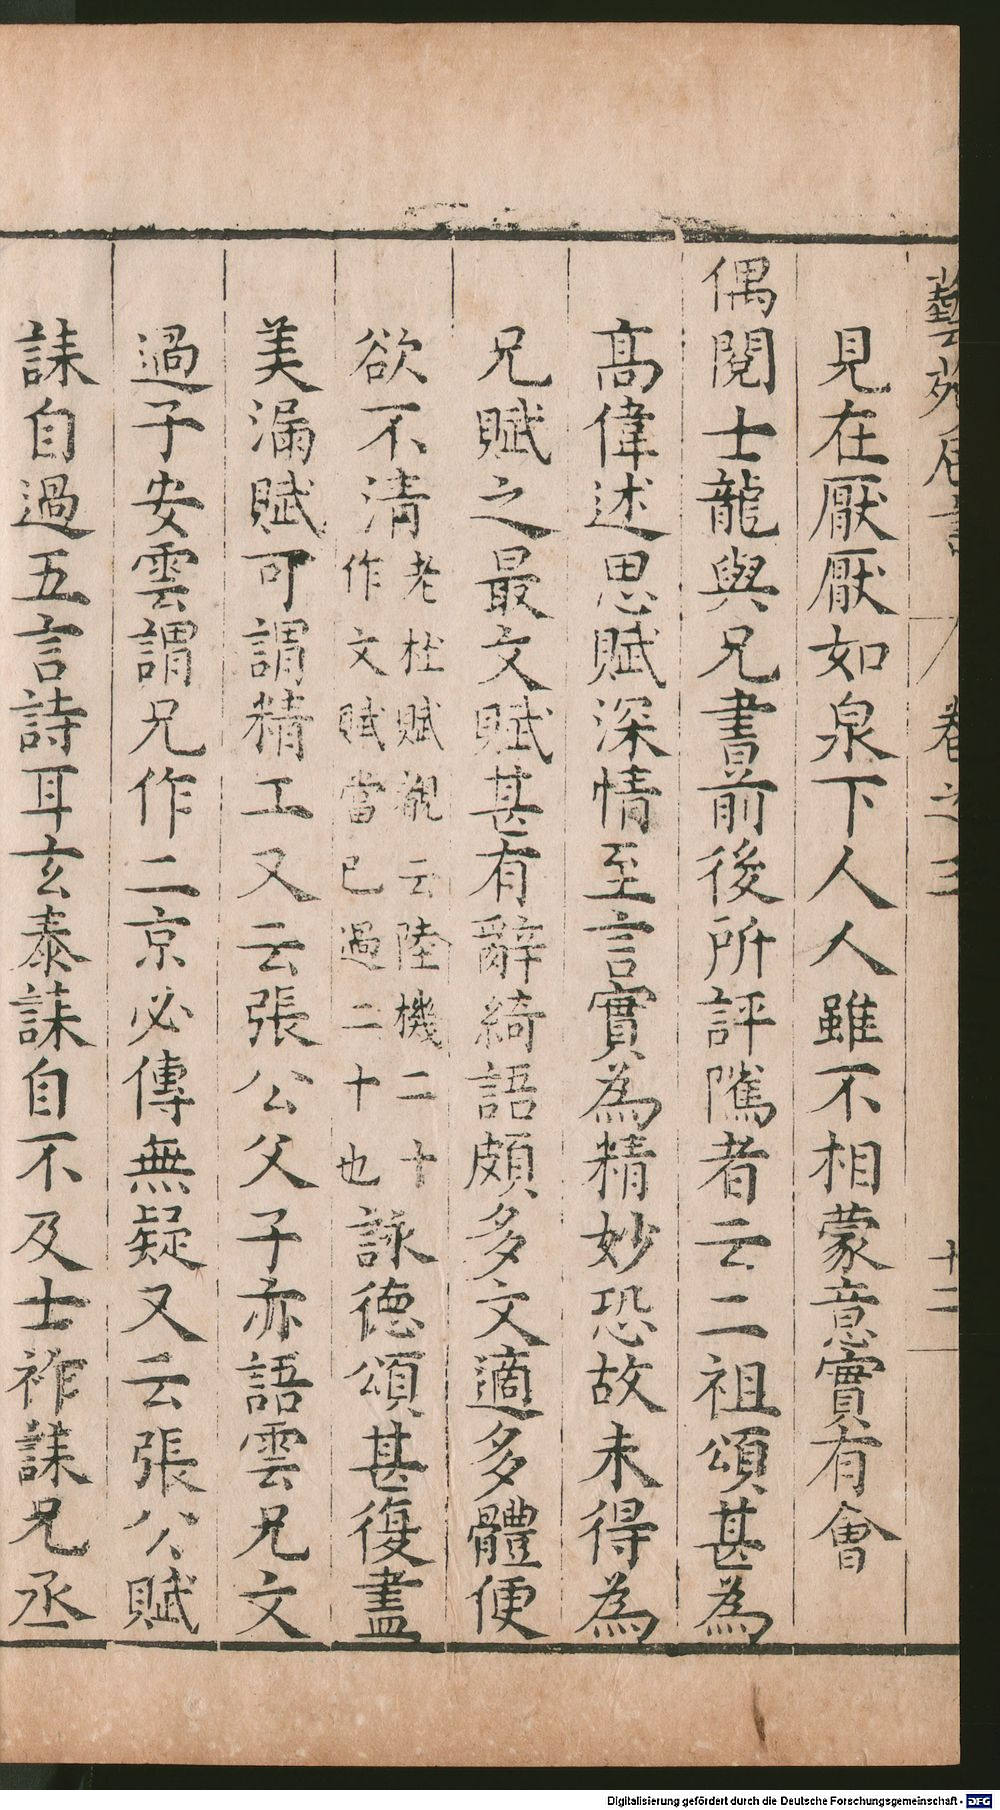 藝苑卮言 卷之三 十二
見在厭厭如泉下人人雖不相蒙意實有會
偶閱士龍與兄書前後所評隲者云二祖頌甚為
高偉述思賦深情至言實為精妙恐故未得為
兄賦之最文賦甚有辭綺語頗多文適多體便
欲不清老杜賦觀云陸機二十作文賦當已過二十也詠德頌甚復盡
美漏賦可謂精工又云張公父子亦語雲兄文
過子安雲謂兄作二京必傳無疑又云張公賦
誄自過五言詩耳玄泰誄自不及士祚誄兄丞
Digitalisierung gefördert durch die Deutsche Forschungsgemeinschaft - DFG